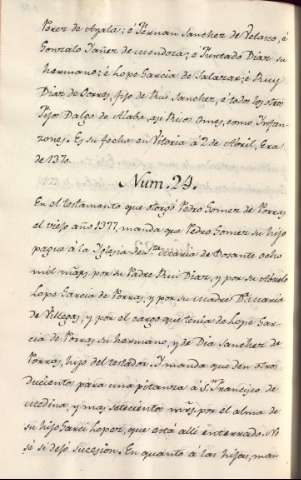 Perez de Ayala; é Fernan Sanchez de Velasco, é
Gonzalo Yañez de Mendoza; é Furtado Diaz su
hermano; é Lope Garcia de Salazar; é Ruy
Diaz de Porras, fijo de Rui Sanchez, é todos los otros
Fijos Dalgo de Alaba, asi Ricos Omes, como Infan-
zones. Es su fecha en Vitoria á 2 de Abril, Era
de 1370.
Num. 24.
En el testamento que otorgó Pedro Gomez de Porras
el viejo año 1377, manda que Pedro Gomez su hijo
pague á la Iglesia de Sta. Maria de ocho
mil mãrs. por su Padre Rui Diaz, y por su Abuelo
Lope Garcia de Porras, y por su Madre Da. Maria
de Villegas; y por el cargo que tenia de Lope Gar-
cia de Porras su hermano, y de Dia Sanchez de
Porras, hijo del testador. Y manda que den otros
Ducientos para una pitanza á Sn. Francisco de
Medina, y mas setecientos mrs. por el alma de
su hijo Garci Lopez, que está alli enterrado. No
sé si dejo sucesion. En quanto á las hijas, man-